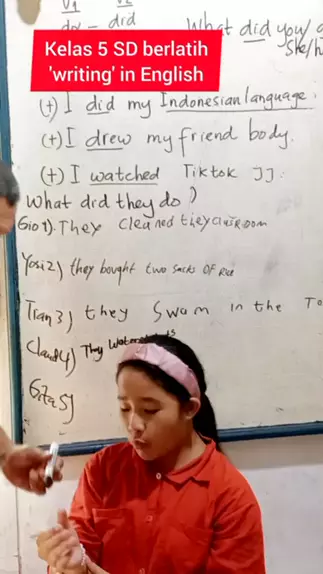 V1 V2
do - did What did you/
She/h
Kelas 5 SD berlatih
'writing' in English
(+) I did my Indonesian language.
(+) I drew my friend body.
(+) I watched Tiktok JJ.
What did they do ?
Gio 1). They cleaned they classroom
Yosi 2) they bought two sacks OF Rice
Tian 3) they Swam in the To
Claud 4) They
Gita 5)